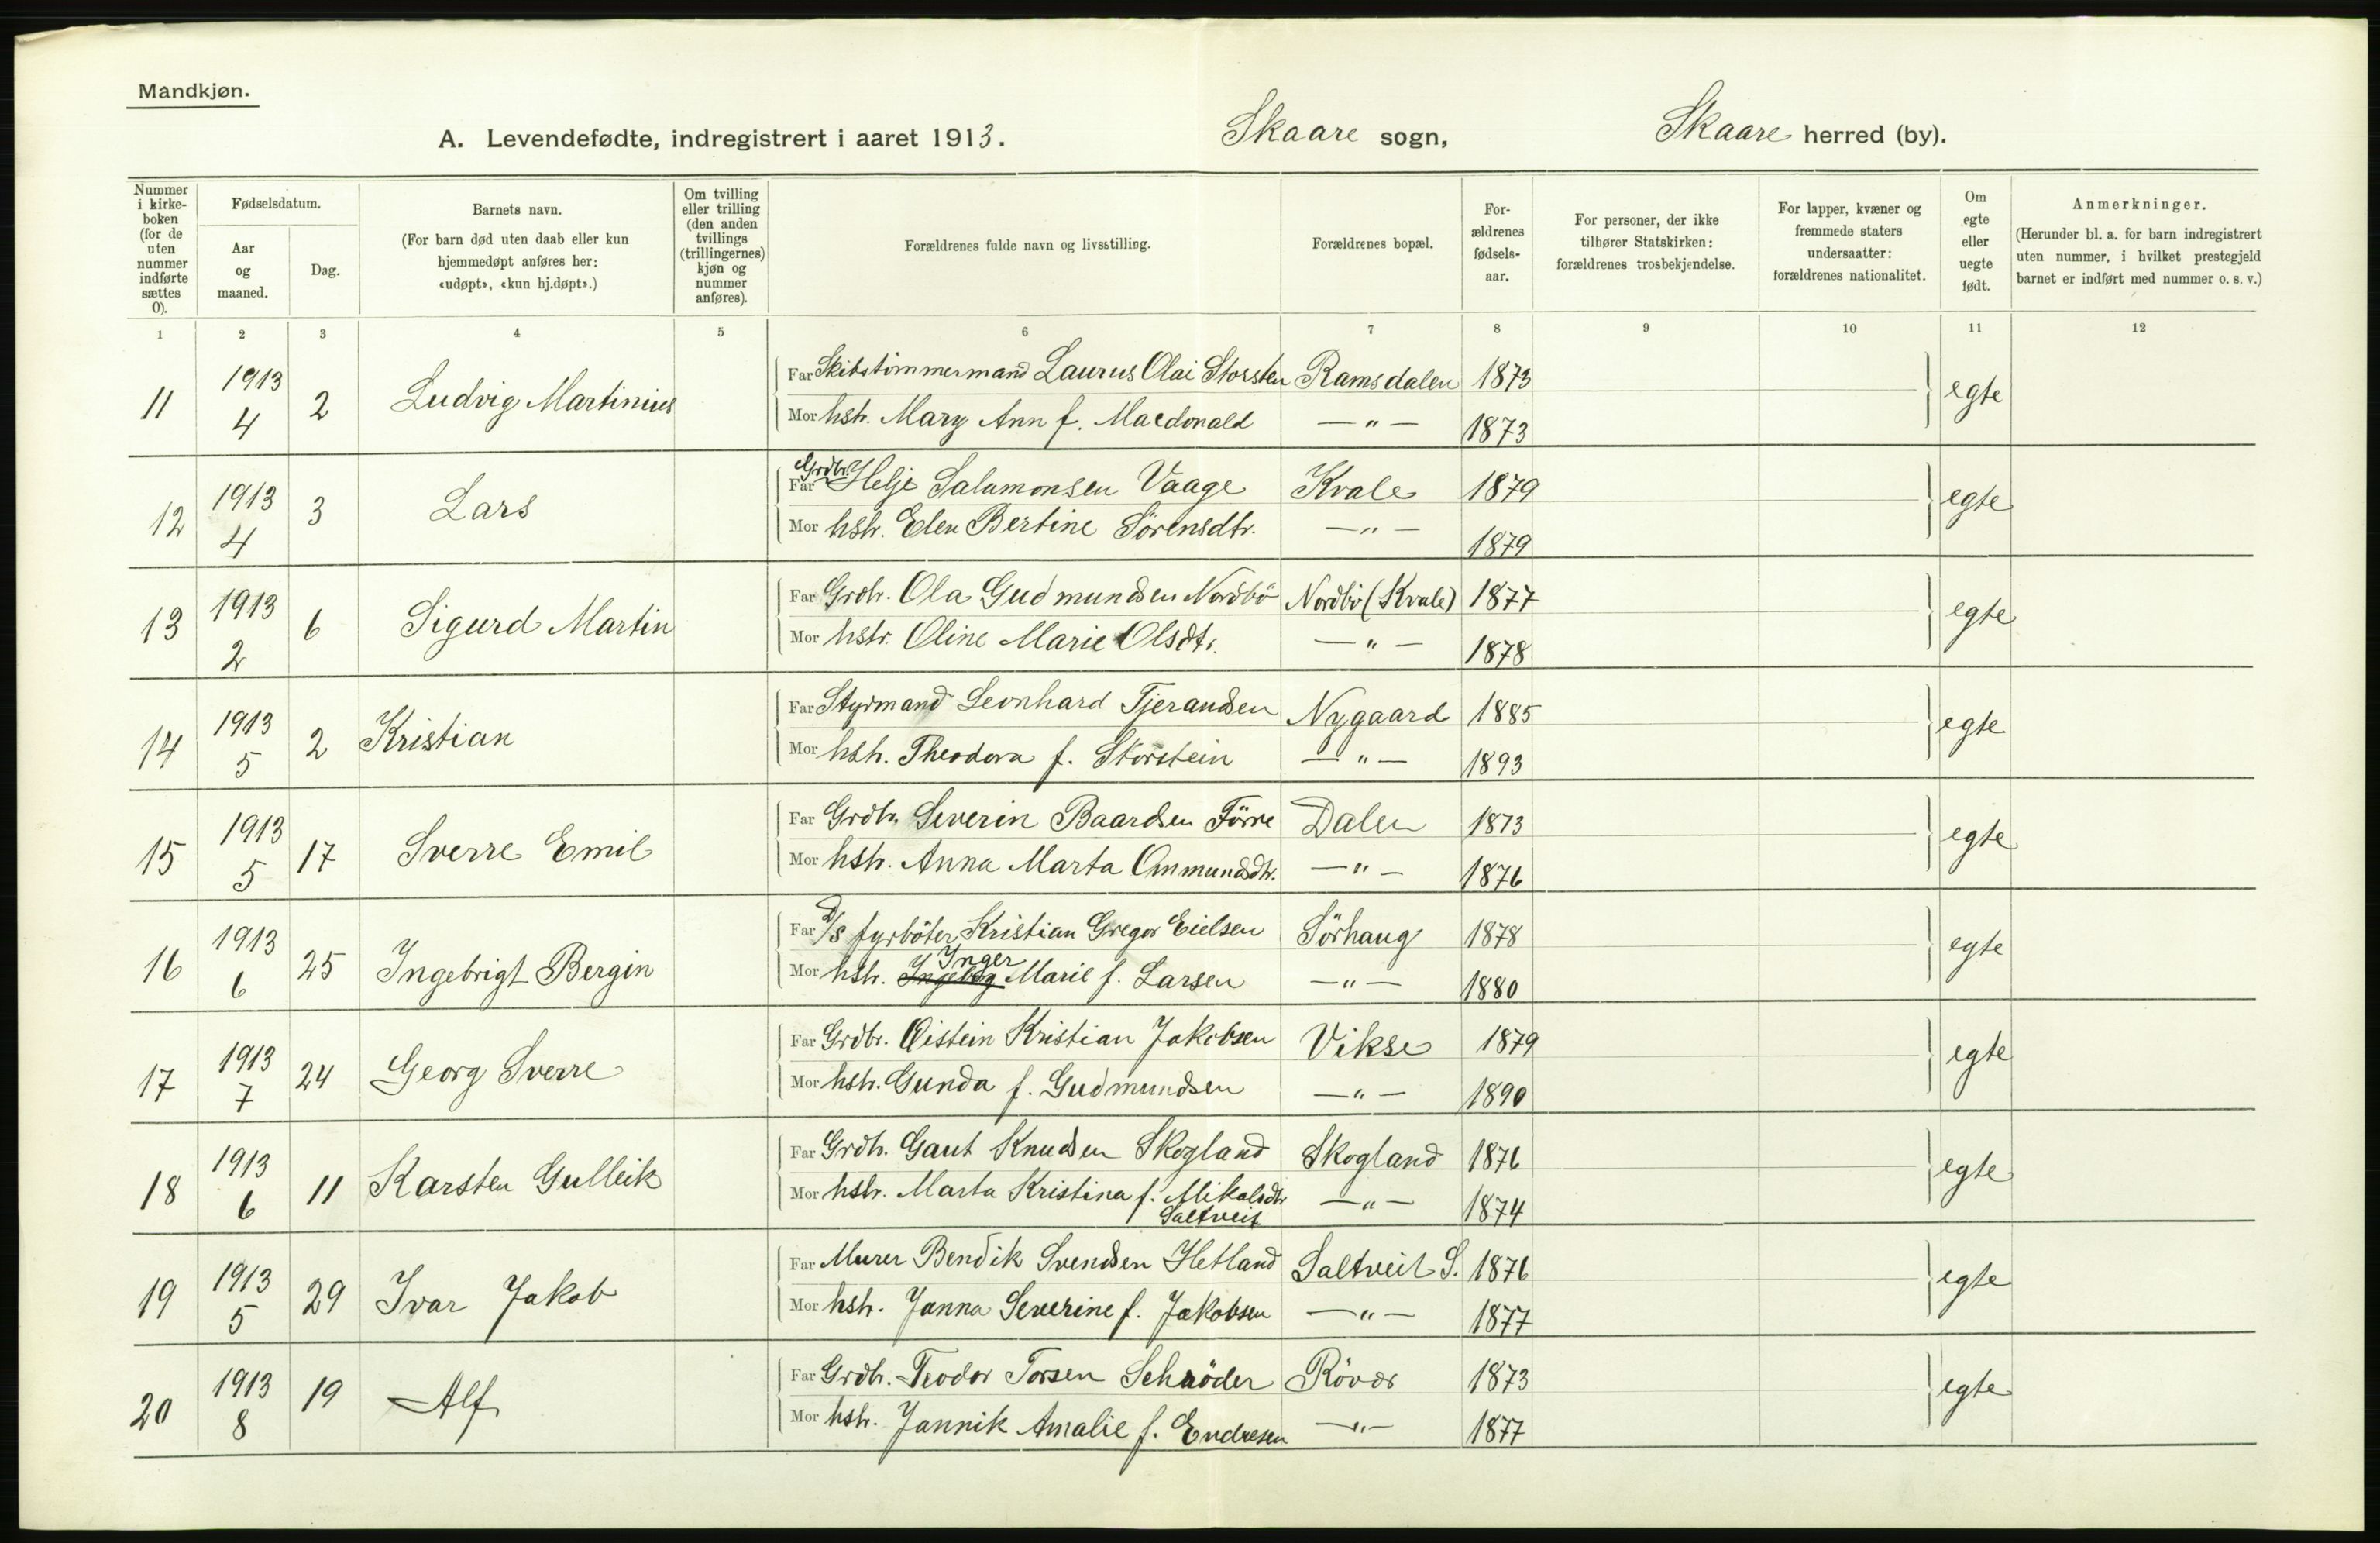 Mandkjøn.
A. Levendefødte, indregistrert i aaret 1913. Skaare sogn, Skaare herred (by).
Nummer i kirke-boken (for de uten nummer indførte sættes 0).
Fødselsdatum.
Aar og maaned.
Dag.
Barnets navn.
(For barn død uten daab eller kun hjemmedøpt anføres her: «udøpt», «kun hj.døpt».)
Om tvilling eller trilling (den anden tvillings (trillingernes) kjøn og nummer anføres).
Forældrenes fulde navn og livsstilling.
Forældrenes bopæl.
For-ældrenes fødsels-aar.
For personer, der ikke tilhører Statskirken: forældrenes trosbekjendelse.
For lapper, kvæner og fremmede staters undersaatter: forældrenes nationalitet.
Om egte eller uegte født.
Anmerkninger.
(Herunder bl. a. for barn indregistrert uten nummer, i hvilket prestegjeld barnet er indført med nummer o. s. v.)
1 2 3 4 5 6 7 8 9 10 11 12
11 1913 4 2 Ludvig Martinius Far Skibstömmermand Laurus Olai Storsten Ramsdalen 1873 egte
Mor hstr. Mary Ann f. Macdonald — " — 1873
12 1913 4 3 Lars Far Grdbr. Helje Salamonsen Vaage Kvale 1879 egte
Mor hstr. Elen Bertine Sörensdtr. — " — 1879
13 1913 2 6 Sigurd Martin Far Grdbr. Ola Gudmundsen Nordbö Nordbö (Kvale) 1877 egte
Mor hstr. Oline Marie Olsdtr. — " — 1878
14 1913 5 2 Kristian Far Styrmand Leonhard Tjerandsen Nygaard 1885 egte
Mor hstr. Theodora f. Storstein — " — 1893
15 1913 5 17 Sverre Emil Far Grdbr. Severin Baardsen Förre Dalen 1873 egte
Mor hstr. Anna Marta Ommundsdtr. — " — 1876
16 1913 6 25 Ingebrigt Bergin Far D/S fyrböter Kristian Gregor Eielsen Sörhaug 1878 egte
Mor hstr. Ingeborg Inger Marie f. Larsen — " — 1880
17 1913 7 24 Georg Sverre Far Grdbr. Öistein Kristian Jakobsen Vikse 1879 egte
Mor hstr. Gunda f. Gudmundsen — " — 1890
18 1913 6 11 Karsten Gulleik Far Grdbr. Gaut Knudsen Skogland Skogland 1876 egte
Mor hstr. Marta Kristina f. Mikalsdtr — " — 1874
Saltveit
19 1913 5 29 Ivar Jakob Far Murer Bendik Svendsen Hetland Saltveit S. 1876 egte
Mor hstr. Janna Severine f. Jakobsen — " — 1877
20 1913 8 19 Alf Far Grdbr. Teodor Torsen Schröder Rövær 1873 egte
Mor hstr. Jannik Amalie f. Endresen — " — 1877